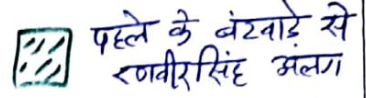 पहले के बंटवाड़े से
रणवीरसिंह अलग